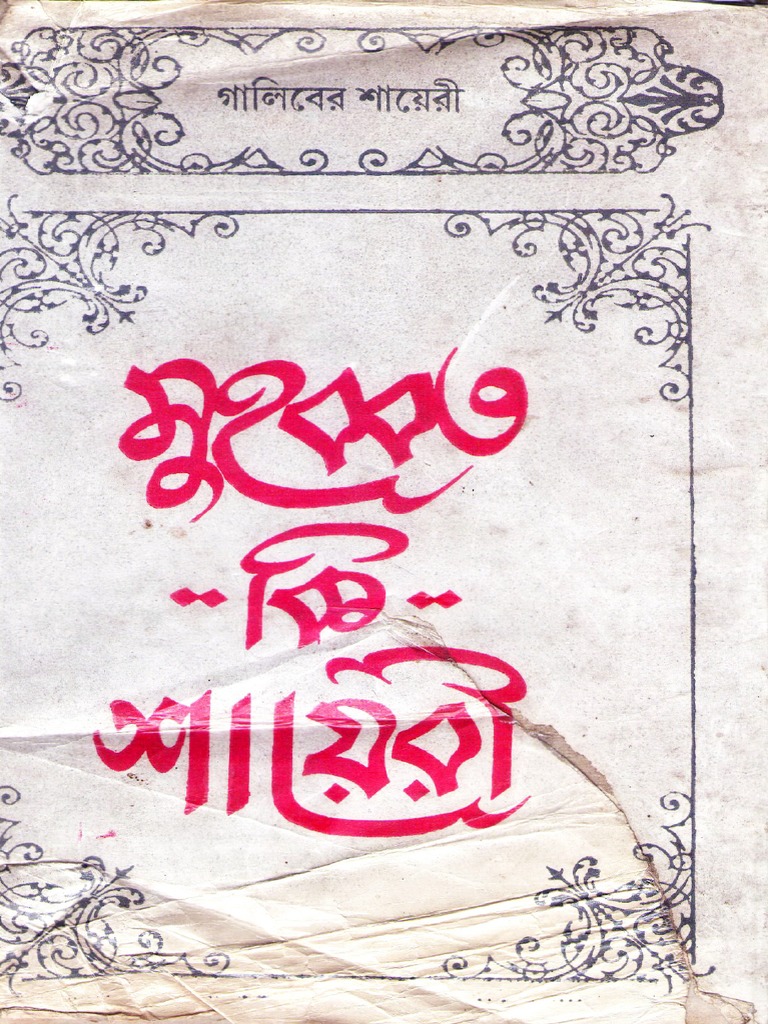 গালিবের শায়েরী
মুহব্বত
- কি -
শায়েরী